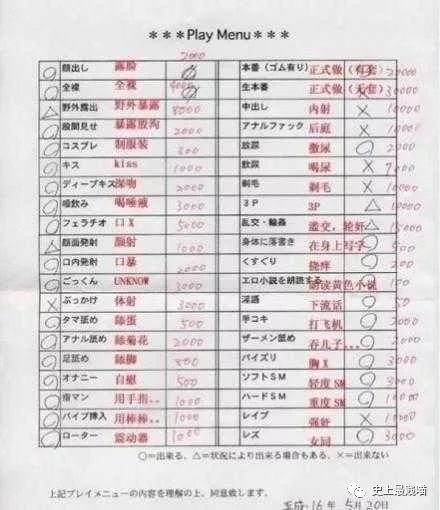 ＊＊＊Play Menu＊＊＊
2000
○ 顔出し 露脸 本番（ゴム有り） 正式做（有套） 20000
全裸 全裸 4000 生本番 正式做（无套） 30000
△ 野外露出 野外暴露 8000 中出し 内射 × 10000
○ 股間見せ 暴露股沟 2000 アナルファック 后庭 × 10000
○ コスプレ 制服装 300 放尿 撒尿 ○ 2000
○ キス kiss 1000 飲尿 喝尿 ×
○ ディープキス 深吻 2000 剃毛 剃毛 × 10000
○ 唾飲み 喝唾液 3000 3P 3P △ 10000
○ フェラチオ 口X 5000 乱交・輪姦 滥交，轮奸 △ 15000
△ 顔面発射 颜射 1000 身体に落書き 在身上写字 ○ 500
○ 口内発射 口暴 2000 くすぐり 挠痒 ○ 200
○ ごっくん UNKNOW 3000 エロ小説を朗読する 朗读黄色小说 100
× ぶっかけ 体射 3000 淫語 下流话 ○ 50
○ タマ舐め 舔蛋 500 手コキ 打飞机 ○ 2000
○ アナル舐め 舔菊花 2000 ザーメン舐め 吞儿子。。 ○
○ 足舐め 舔脚 800 パイズリ 胸X ○ 3000
○ オナニー 自慰 500 ソフトSM 轻度SM ○ 3000
○ 指マン 用手指。。 1000 ハードSM 重度SM ○ 10000
○ バイブ挿入 用棒棒。。 1000 レイプ 强奸 × 10000
○ ローター 震动器 1000 レズ 女同 ○ 3000
○=出来る、△=状況により出来る場合もある、×=出来ない
上記プレイメニューの内容を理解の上、同意致します。
平成・16年 5月20日
史上最贱喵